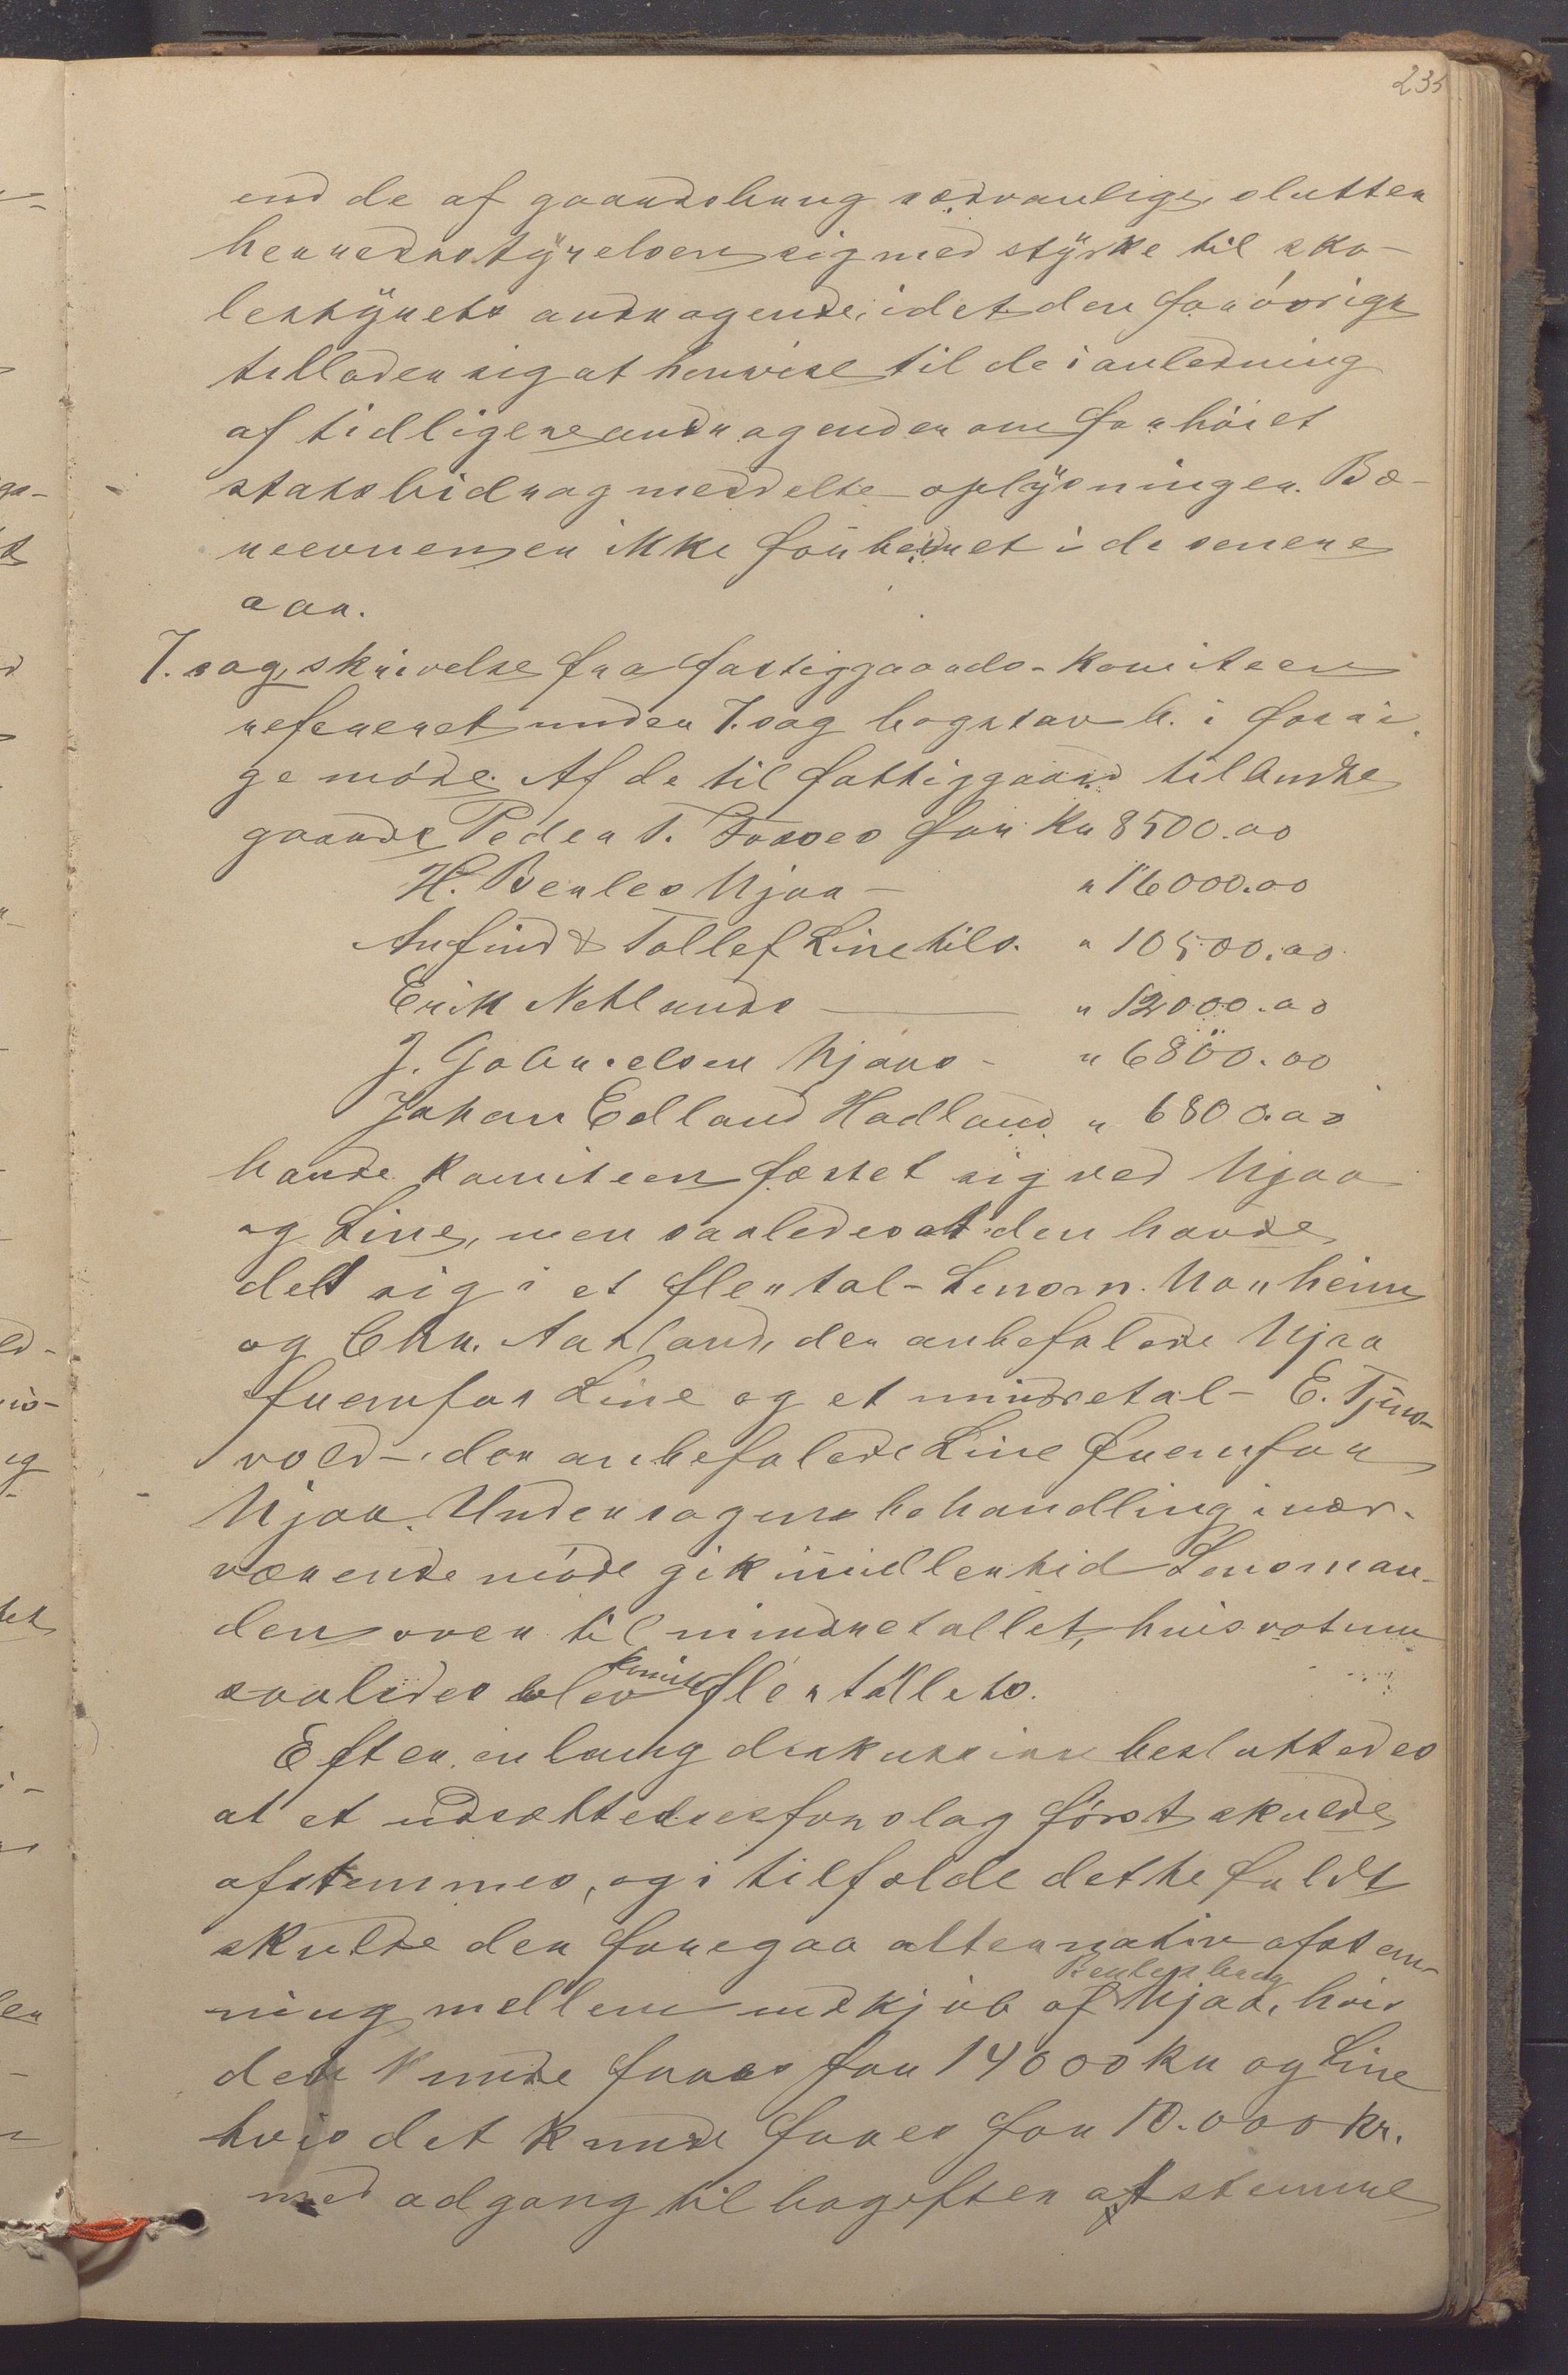 235
end de af gaardsbrug sedvanlige, slutter
herredsstyrelsen sig med styrke til sko-
lestyrets andragende, idet den forøvrigt
tillader sig at henvise til de i anledning
af tidligere andragender om forhøiet
statsbidrag meddelte oplysninger. Bæ-
reevnen er ikke forbedret i de senere
aar.
7. sag, skrivelse fra fattiggaards-komiteen
refereret under 7. sag bogstav b. i forri-
ge møde. Af de til fattiggaard tilbudte
gaarde Peder T. Fosses for Kr 8500.00
H. Berles Njaa — " 16000.00
Anfind & Tollef Line tils. " 10500.00
Erik Netlands — " 12000.00
J. Gabrielsen Njaas - " 6800.00
Johan Edland Hadland " 6800.00
havde komiteen festet sig ved Njaa
og Line, men saaledes at den havde
delt sig i et flertal - Lensm. Norheim
og Chr. Aarland, der anbefalede Njaa
fremfor Line og et mindretal - E. Tjøns-
vold - der anbefalede Line fremfor
Njaa. Under sagens behandling i nær-
værende møde gik imidlertid Lensman-
den over til mindretallet, hvis votum
saaledes blev komite flertallets.
Efter en lang diskussion besluttedes
at et udsættelsesforslag først skulde
afstemmes, og i tilfælde dette faldt
skulde der foregaa alternativ afstem-
ning mellem indkjøb af Berles brug Njaa, hvis
det kunde faaes for 14000 kr og Line
hvis det kunde faaes for 10.000 kr.
med adgang til bagefter at stemme